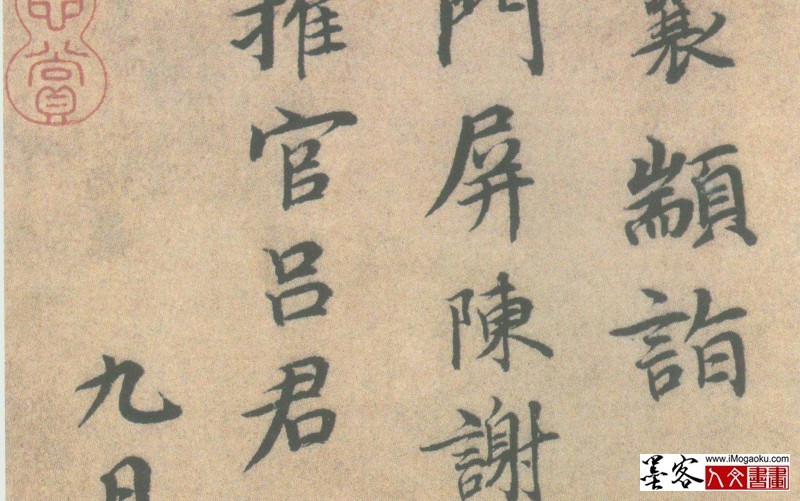 襄顓詣
門屏陳謝
推官呂君
九月
賞
墨客
www.iMogaoku.com
人文書畫